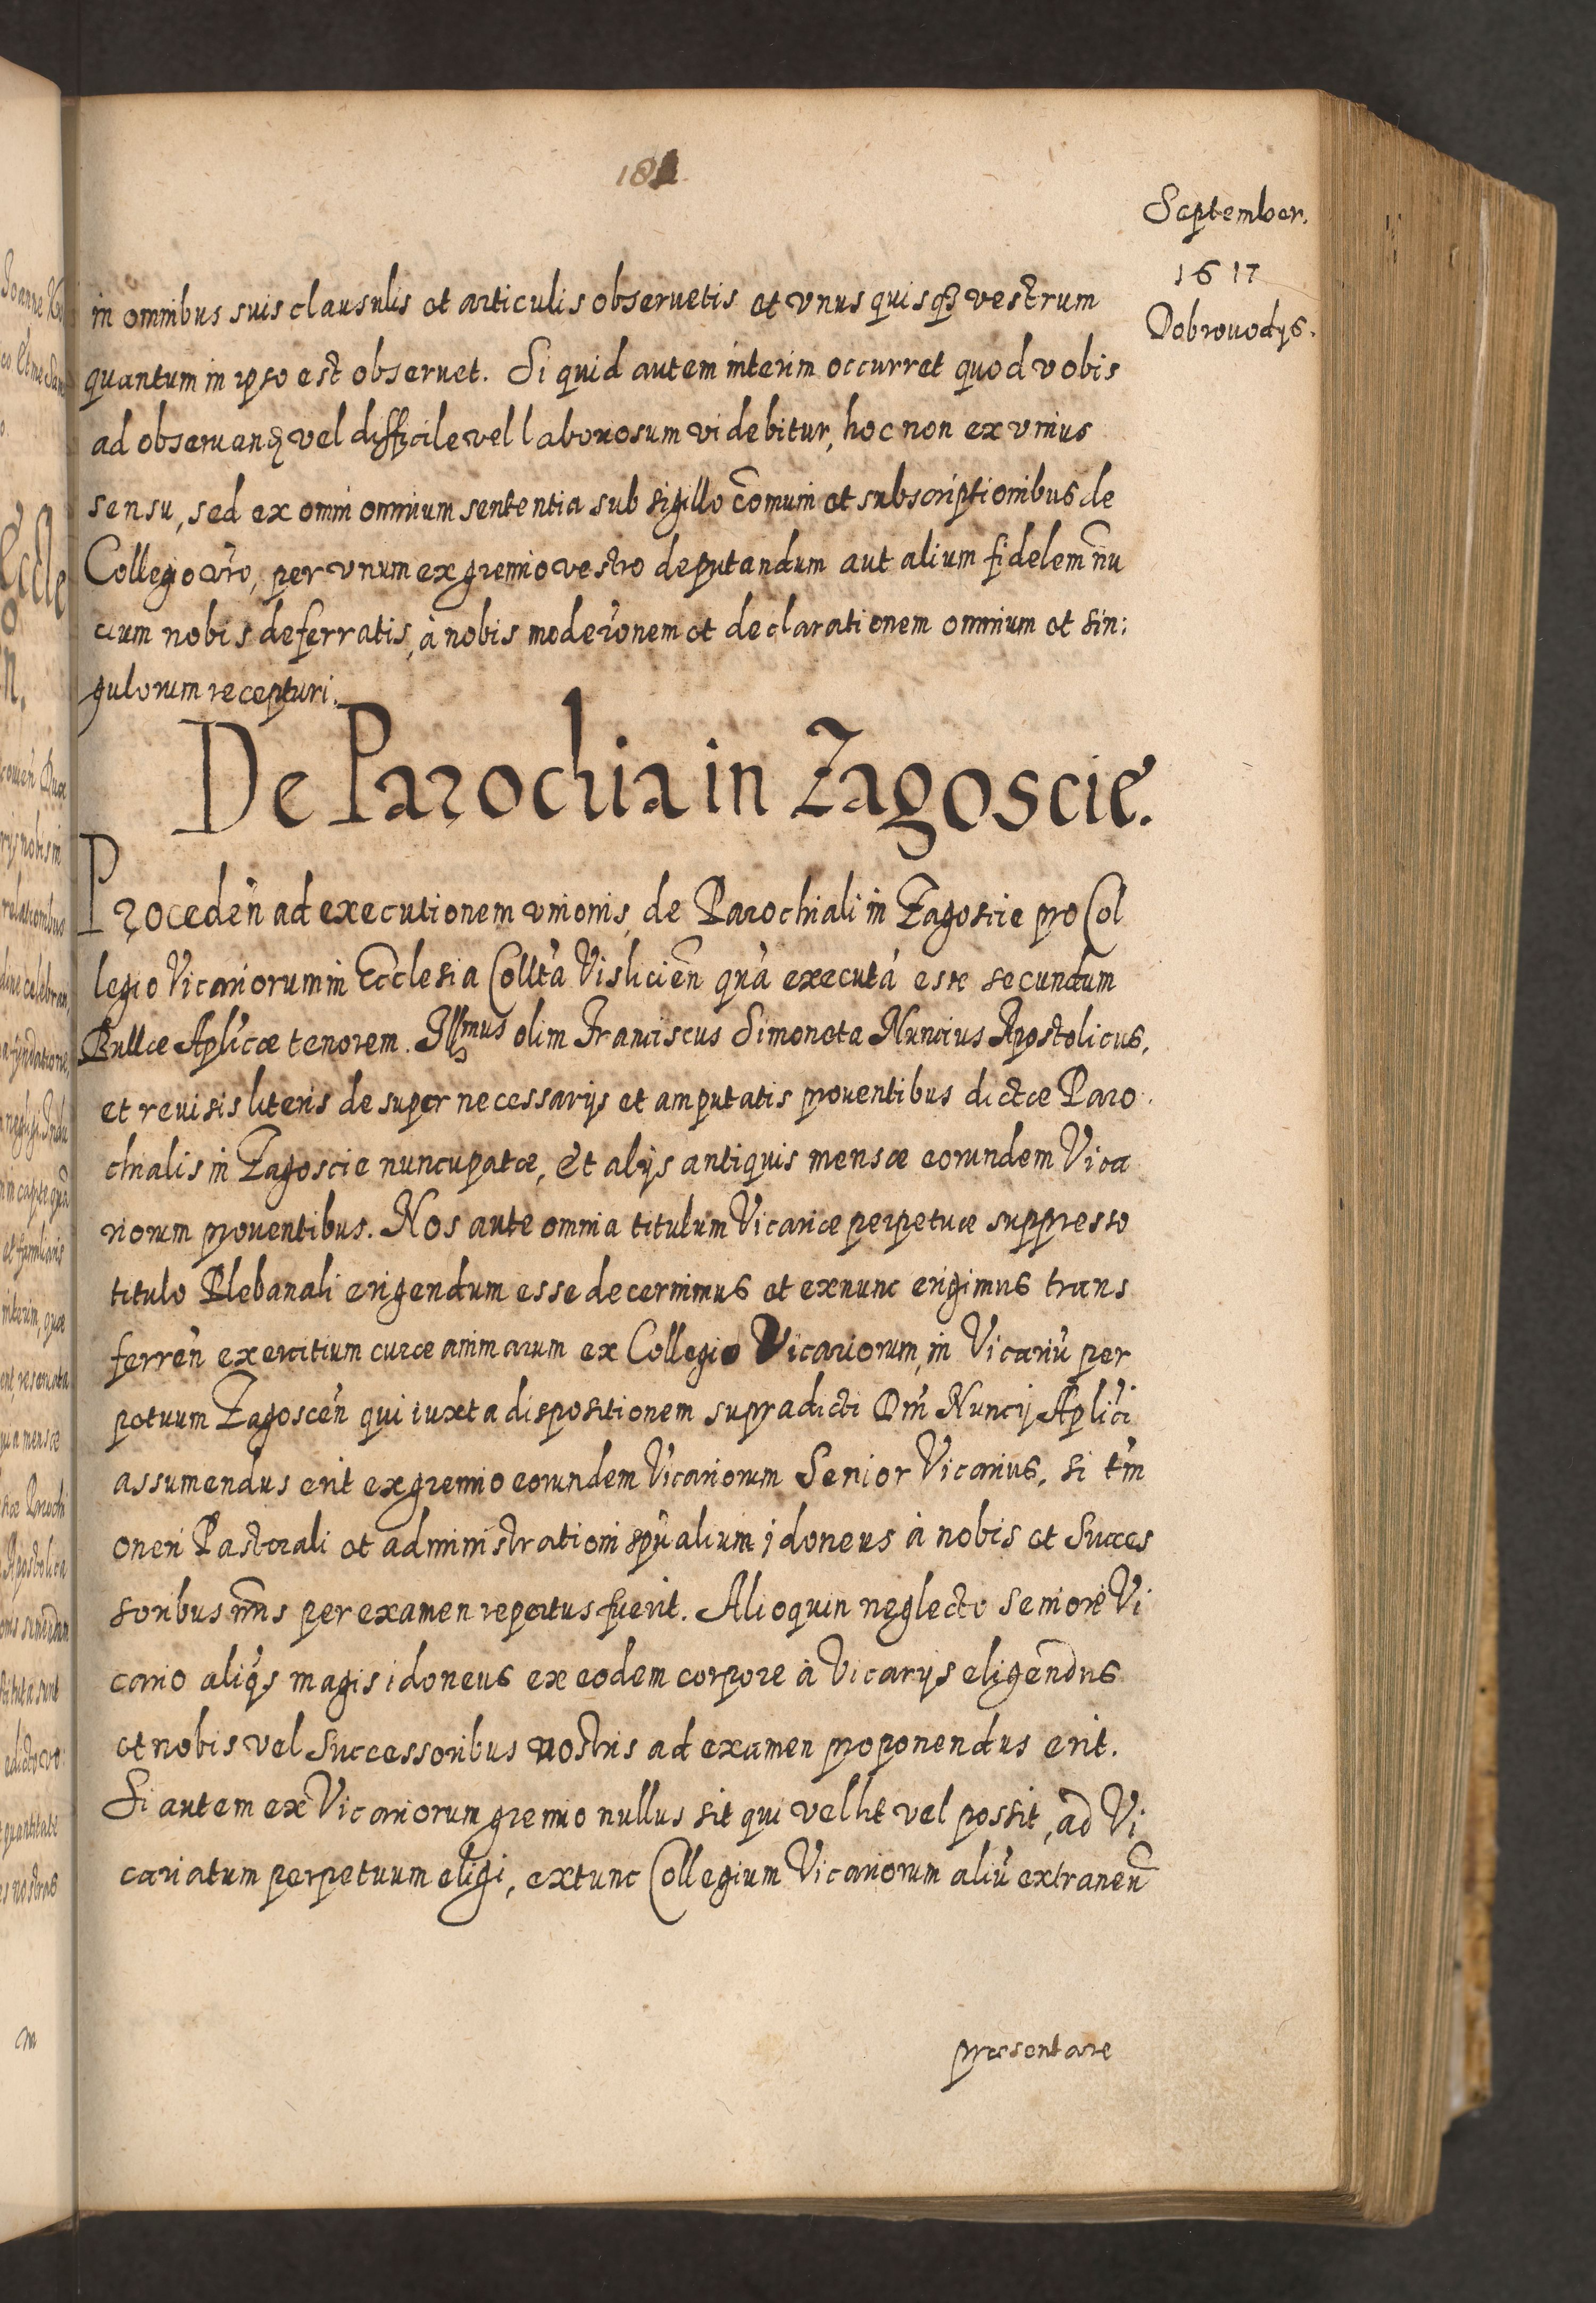 September.
1617
Dobrouodys.
in omnibus suis clausulis et articulis obseruetis et vnus quisqꝫ vestrum
quantum in ipso est obseruet. Si quid autem interim occurret quod vobis
ad obseruanꝫ vel difficile vel laboriosum videbitur, hoc non ex vnius
sensu, sed ex omni omnium sententia sub sigillo com̃uni et subscriptionibus de
Collegio vr̃o, per vnum ex gremio vestro deputandum aut alium fidelem nũ
cium nobis deferratis, à nobis moder̃onem et declarationem omnium et sin:
gulorum recepturi.
De Parochia in Zagoscie.
Proceden̄ ad executionem vnionis, de Parochiali in Zagoscie pro Col
legio Vicariorum in Ecclesia Collt̃a Vislicien̄ qũa executã este secundum
Bullæ Aplicæ tenorem. Illmus olim Franciscus Simoneta Nuncius Apostolicus,
et reuisis literis desuper necessarijs et amputatis prouentibus dictæ Paro
chialis in Zagoscie nuncupatæ, Et alijs antiquis mensæ eorundem Vica
riorum prouentibus. Nos ante omnia titulum Vicariæ perpetuæ suppresso
titulo Plebanali erigendum esse decernimus et exnunc erigimus trans
ferren̄ exercitium curæ animarum ex Collegio Vicariorum, in Vicariũ per
petuum Zagoscen̄ qui iuxta dispositionem supradicti Dn̄i Nuncij Aplici
assumendus erit ex gremio eorundem Vicariorum Senior Vicarius, si tm̄
oneri Pastorali et administrationi spũalium idoneus à nobis et Succes
soribus nr̃is per examen repertus fuerit. Alioquin neglecto seniore Vi
cario aliqs magis idoneus ex eodem corpore à Vicarijs eligendus
et nobis vel Successoribus nostris ad examen proponendus erit.
Si autem ex Vicariorum gremio nullus sit qui vellit vel possit, ad Vi
cariatum perpetuum eligi, extunc Collegium Vicariorum aliũ extraneũ
presentare